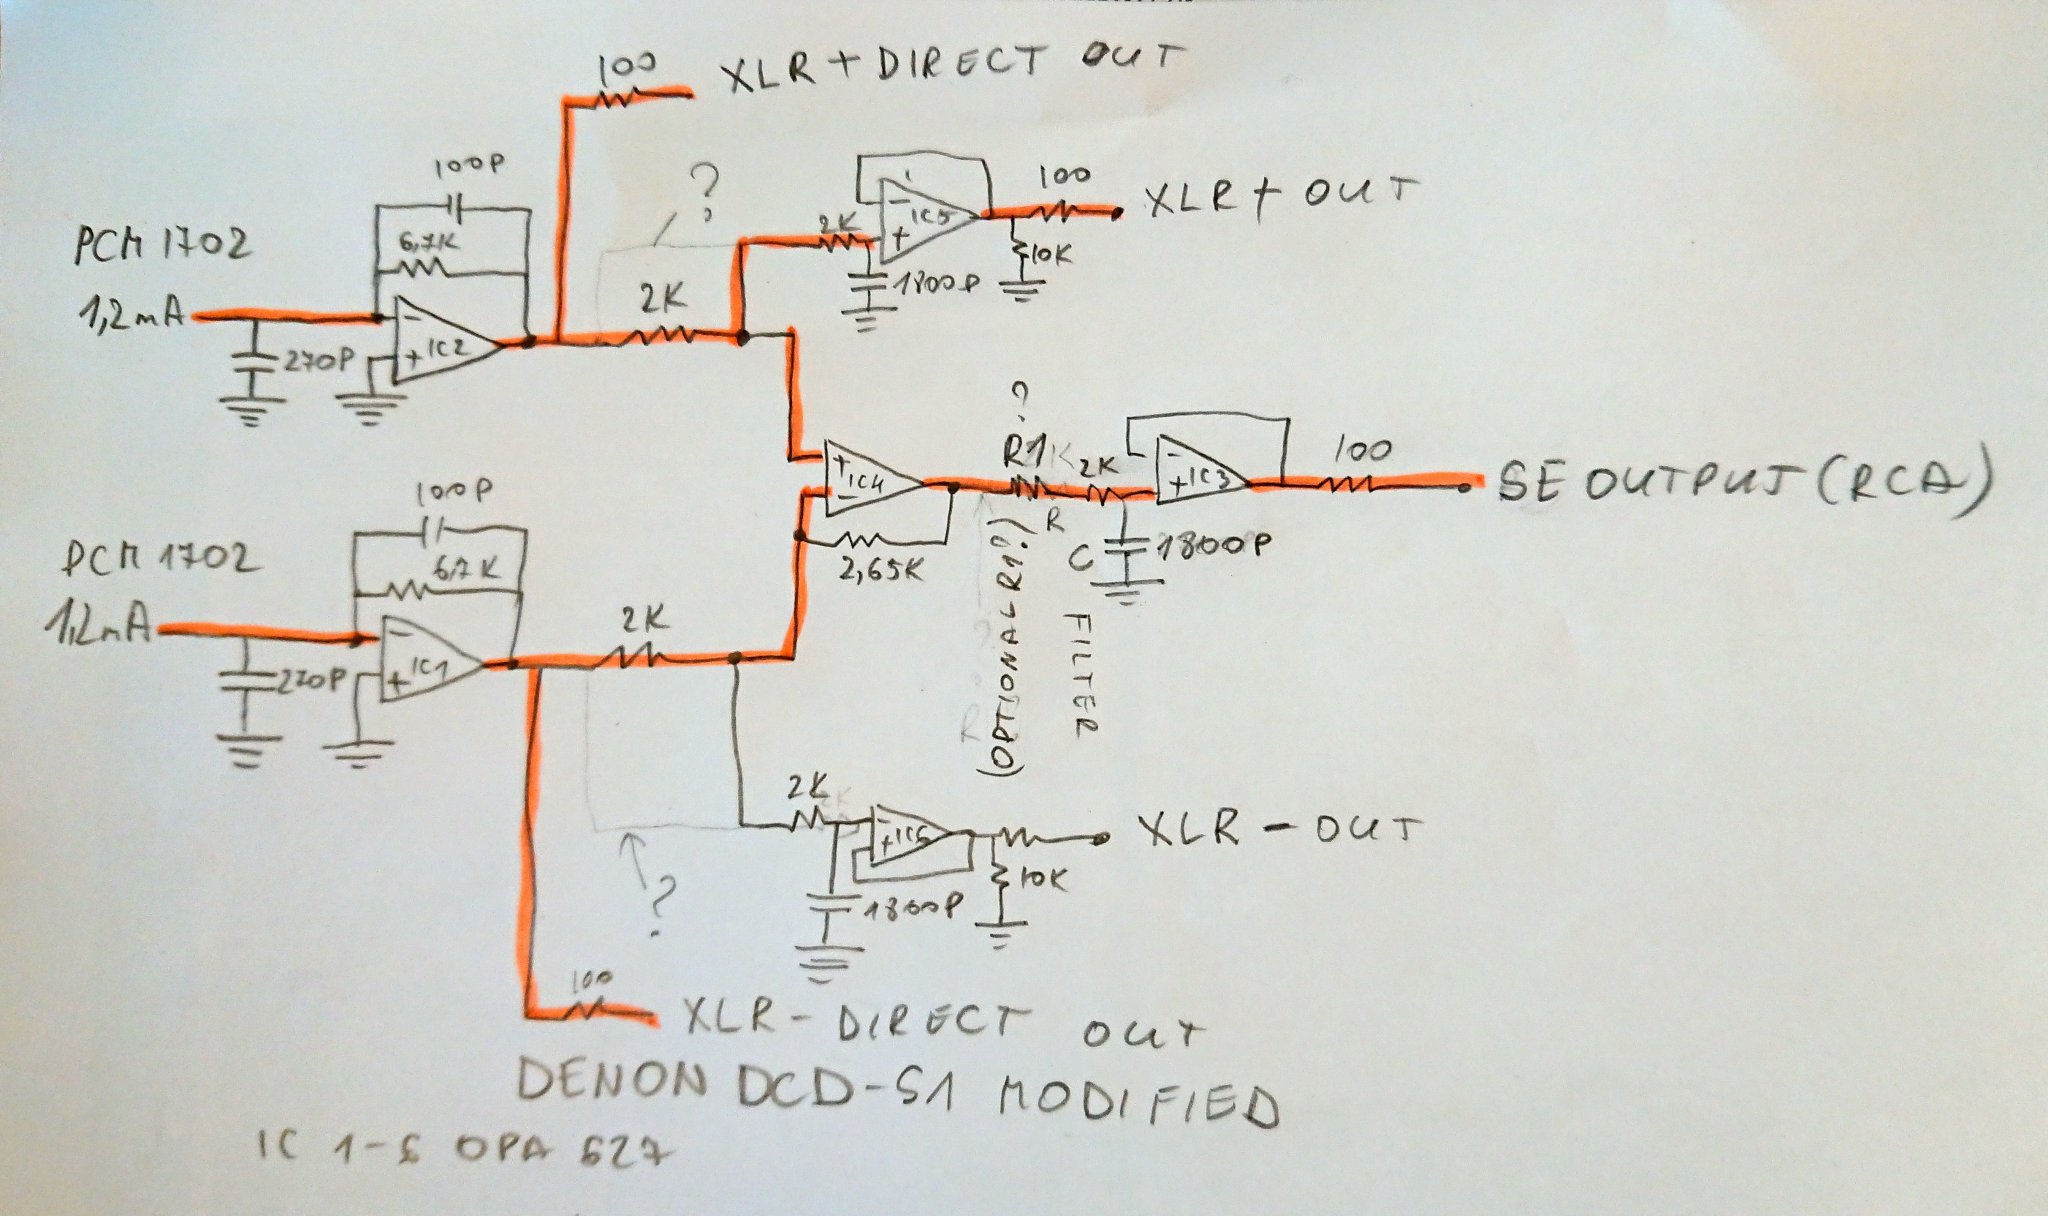 100 XLR + DIRECT OUT
100P
?
100
XLR + OUT
PCM 1702
6,7K
2K
IC5
-
+
10K
1,2mA
270P
-
+
IC2
2K
1800P
?
R1
2K
100
+
-
IC4
-
+
IC3
SE OUTPUT (RCA)
2,65K
R
C
1800P
(OPTIONAL R1?)
FILTER
100P
PCM 1702
6,7K
1,2mA
270P
-
+
IC1
2K
2K
-
+
IC6
XLR - OUT
10K
1800P
?
100
XLR - DIRECT OUT
DENON DCD-S1 MODIFIED
IC 1-6 OPA 627